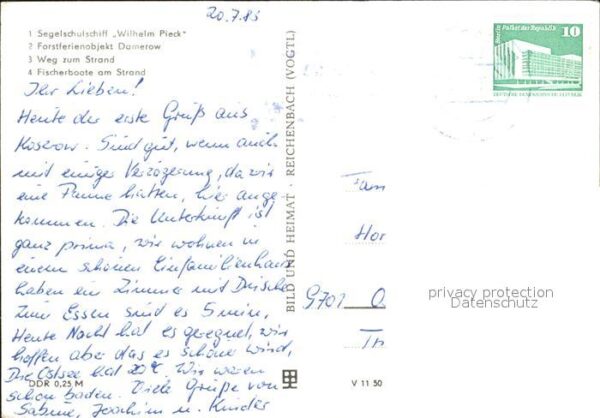 20.7.83
1 Segelschulschiff „Wilhelm Pieck"
2 Forstferienobjekt Damerow
3 Weg zum Strand
4 Fischerboote am Strand
Ihr Lieben!
Heute der erste Gruß aus
Koserow. Sind gut, wenn auch
mit einiger Verzögerung, da wir
eine Panne hatten, hier ange-
kommen. Die Unterkunft ist
ganz prima, wir wohnen in
einem schönen Einfamilienhaus
haben ein Zimmer mit Dusche
Zum Essen sind es 5 min.
Heute Nacht hat es geregnet, wir
hoffen aber das es schöne wird,
Die Ostsee hat 20°C. Wir waren
schon baden. Viele Grüße von
Sabine, Joachim u. Kinder
DDR 0,25 M
BILD UND HEIMAT · REICHENBACH (VOGTL)
V 11 50
Berlin Palast der Republik
10
DEUTSCHE DEMOKRATISCHE REPUBLIK
Fam
Hor
9701 O
Str
privacy protection
Datenschutz